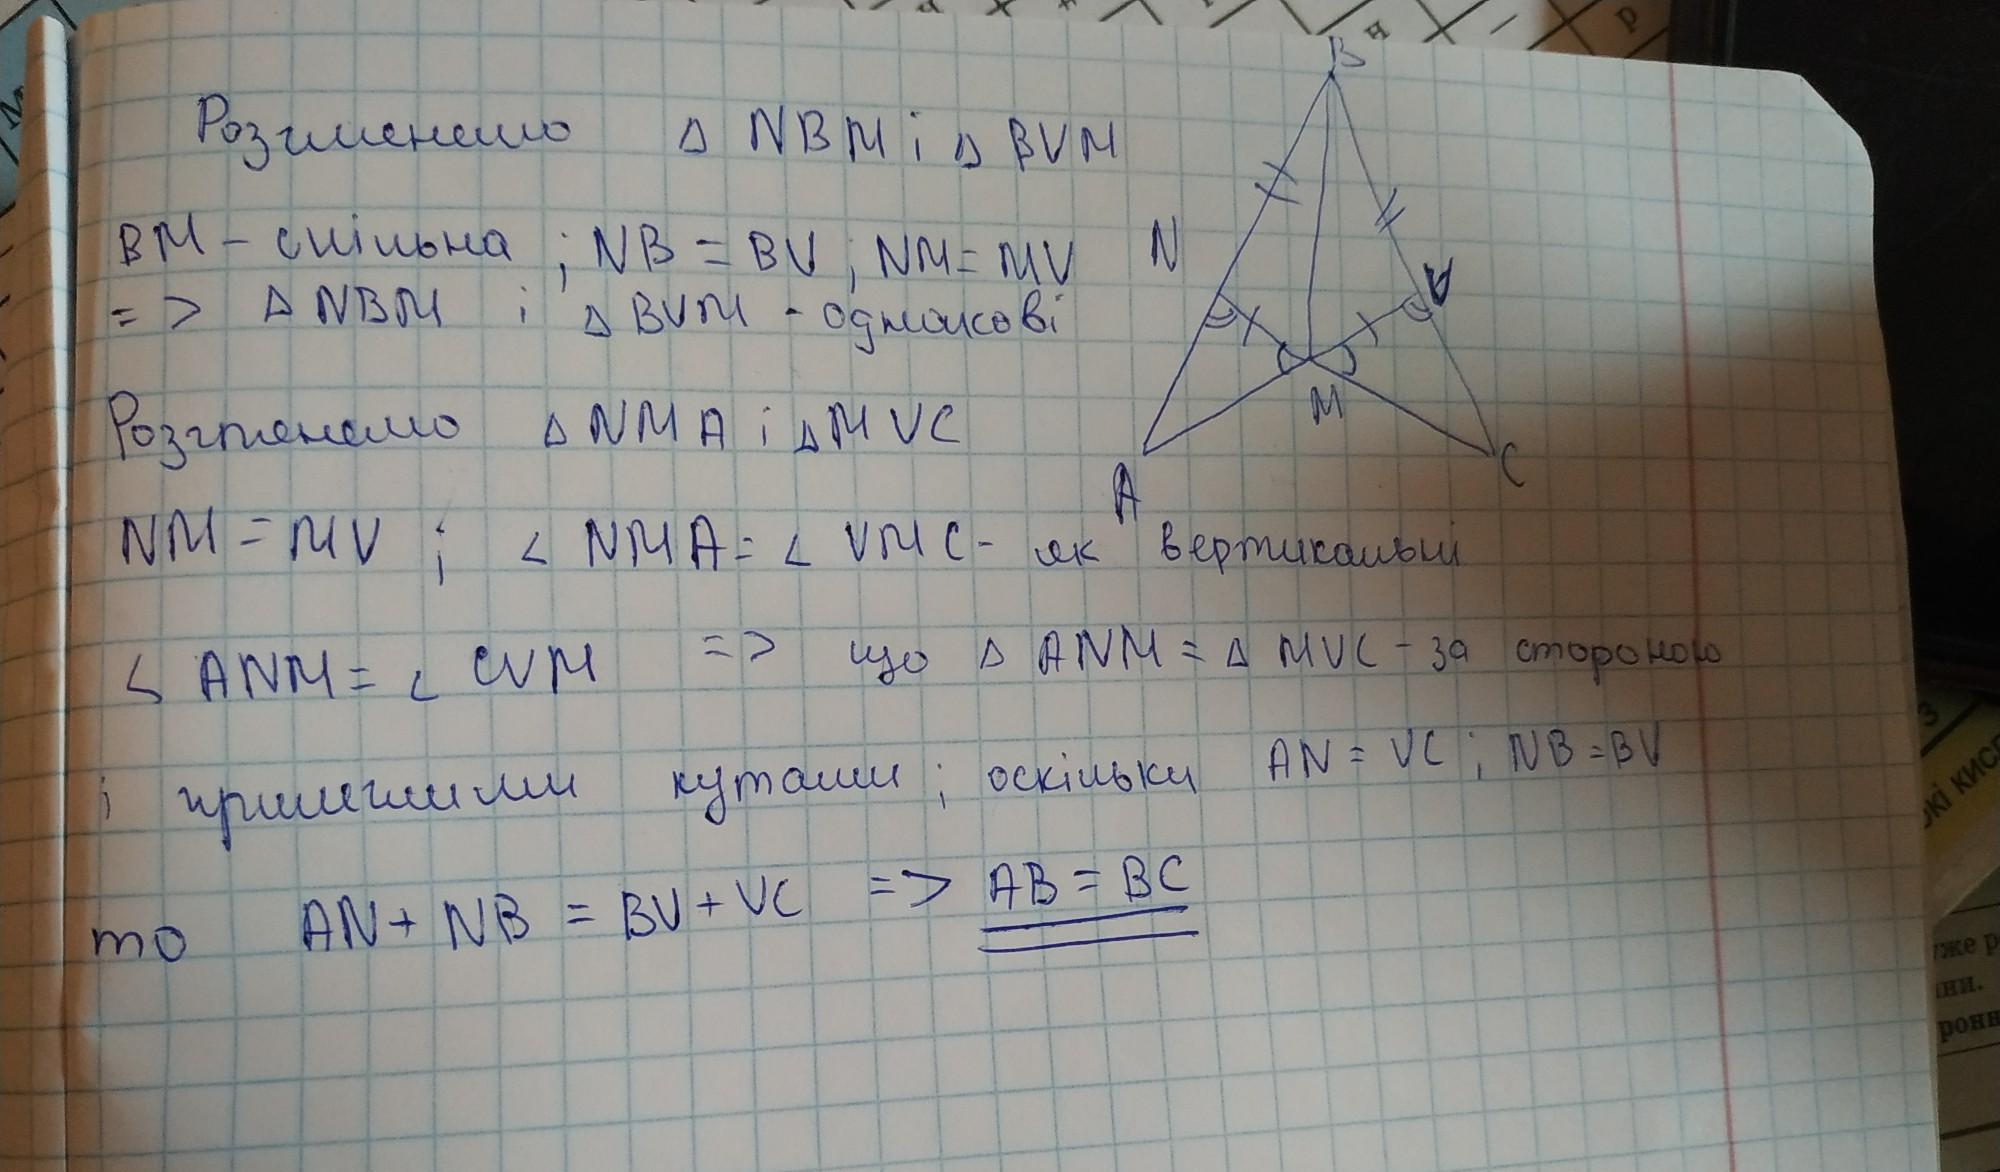 Розгленемо △ NBM і △ BVM
BM - спільна ; NB = BV ; NM = MV
=> △ NBM і △ BVM - однакові
Розгленемо △ NMA і △ MVC
NM = MV ; ∠ NMA = ∠ VMC - як вертикальні
∠ ANM = ∠ CVM => що △ ANM = △ MVC - за стороною
і прилеглими кутами ; оскільки AN = VC ; NB = BV
то AN + NB = BV + VC => AB = BC
B
N
V
M
A
C
р
3
ркі кисл
уже р
ни.
ронн